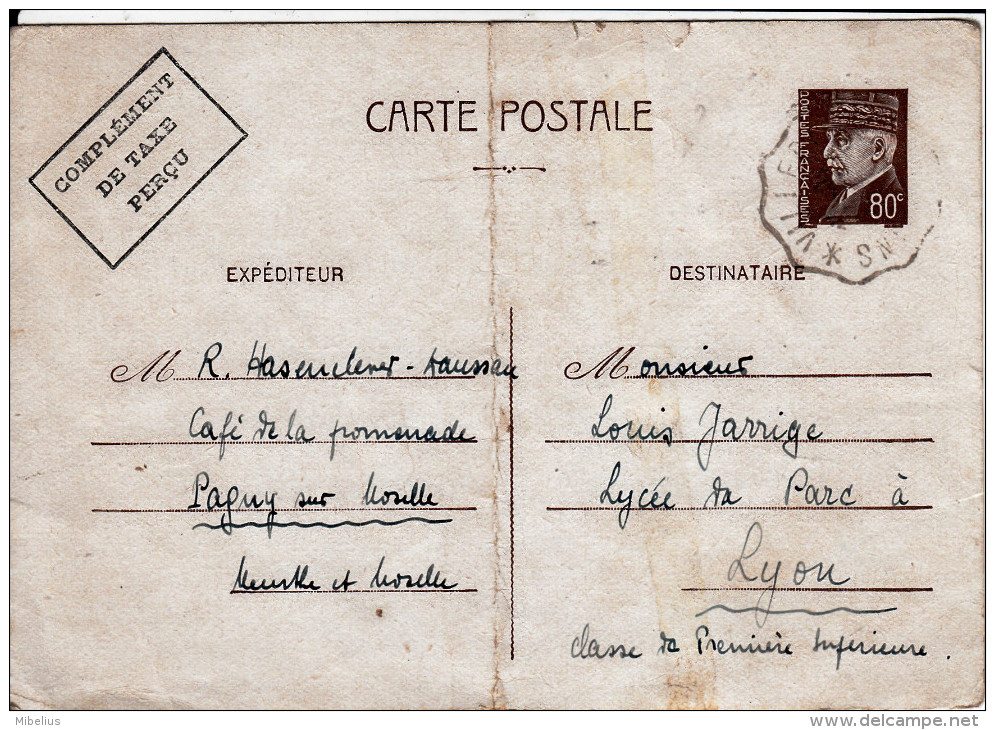 COMPLÉMENT
DE TAXE
PERÇU
CARTE POSTALE
POSTES FRANÇAISES
80c
EXPÉDITEUR
M R. Hasenclever-
Café de la promenade
Pagny sur Moselle
Meurthe et Moselle
DESTINATAIRE
Monsieur
Louis Jarrige
Lycée du Parc à
Lyon
Classe de Première Supérieure.
Mibelius
http://www.delcampe.net